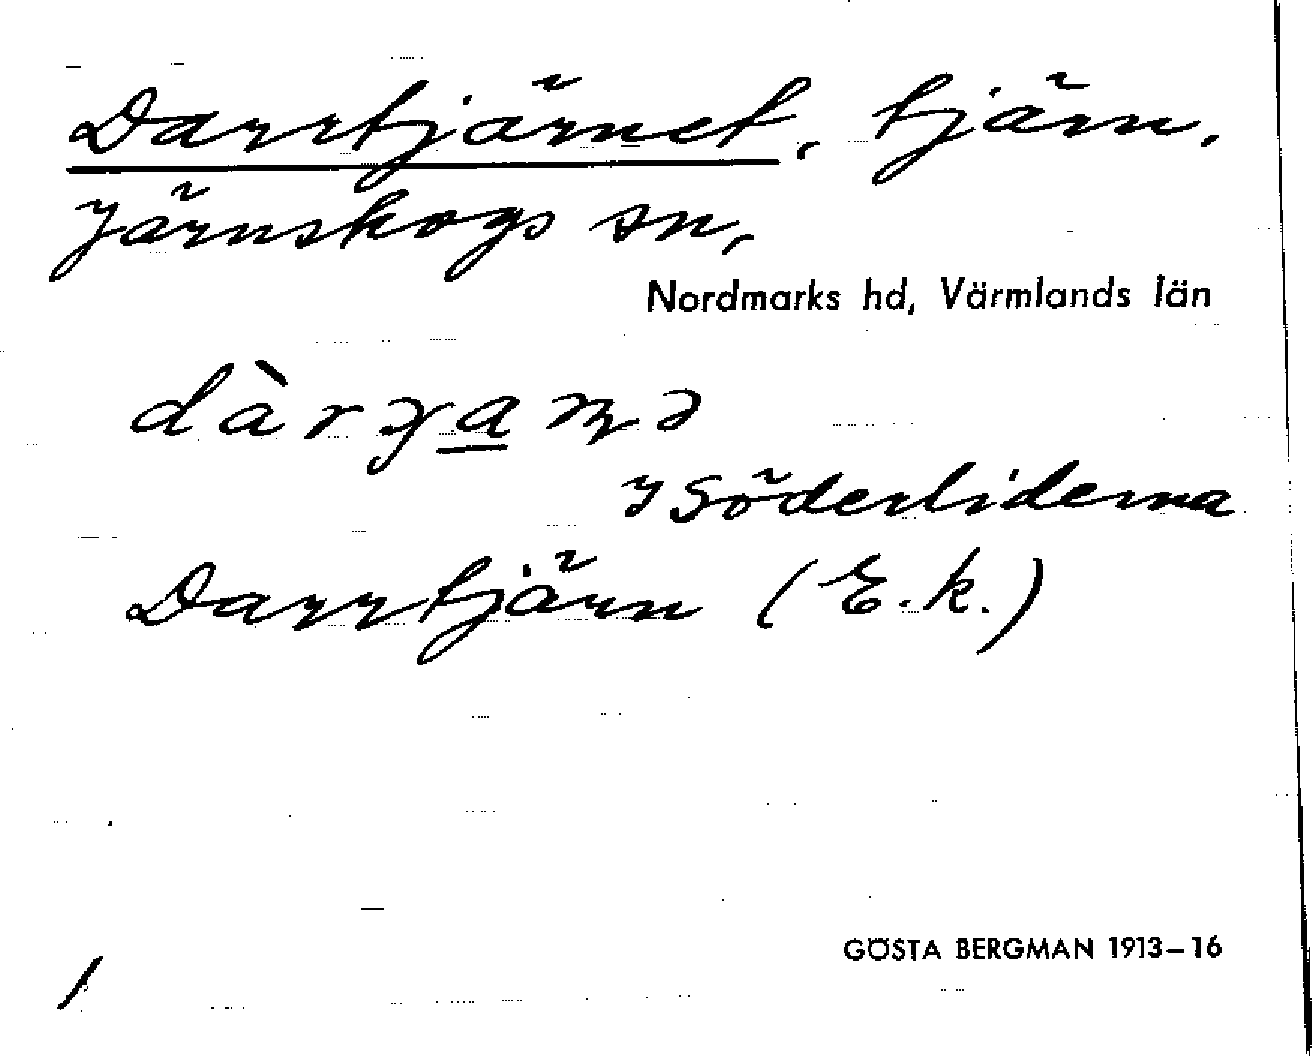 Darrtjärnet, tjärn,
Järnskogs sn,
Nordmarks hd, Värmlands län
I Söderliderna
Darrtjärn (E.k.)
GÖSTA BERGMAN 1913–16